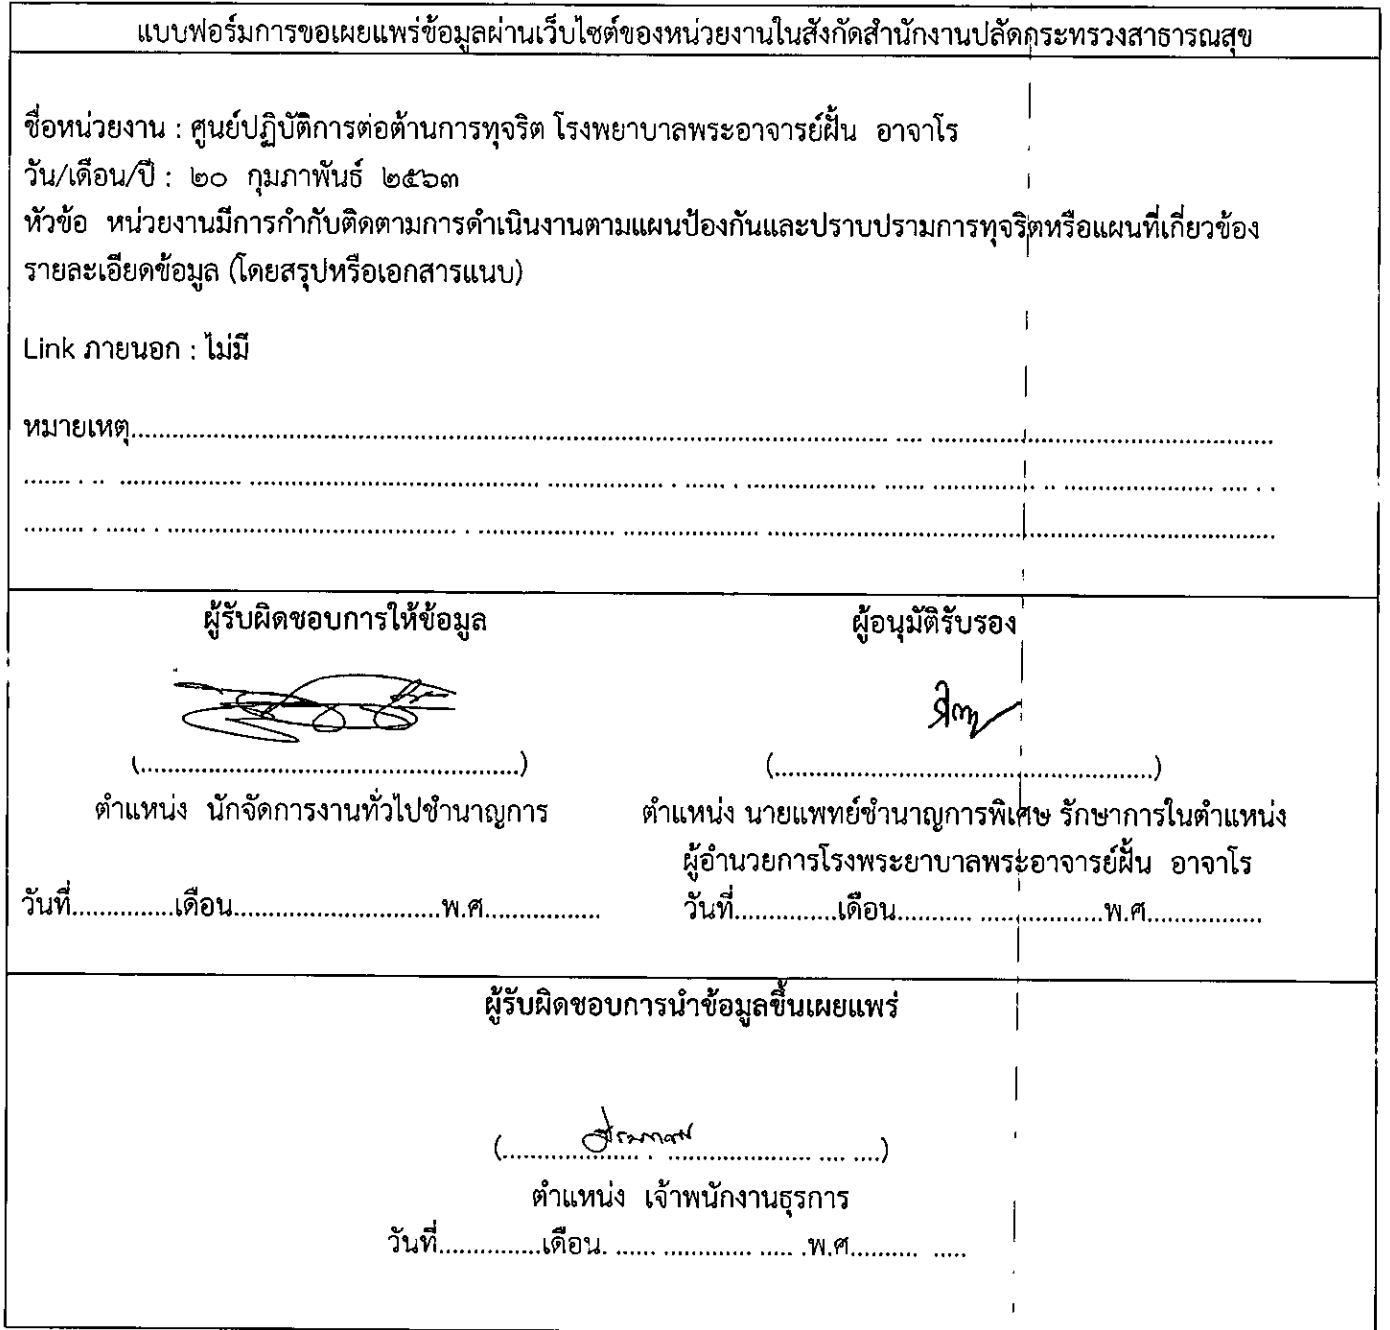 แบบฟอร์มการขอเผยแพร่ข้อมูลผ่านเว็บไซต์ของหน่วยงานในสังกัดสำนักงานปลัดกระทรวงสาธารณสุข
ชื่อหน่วยงาน : ศูนย์ปฏิบัติการต่อต้านการทุจริต โรงพยาบาลพระอาจารย์ฝั้น อาจาโร
วัน/เดือน/ปี : ๒๐ กุมภาพันธ์ ๒๕๖๓
หัวข้อ หน่วยงานมีการกำกับติดตามการดำเนินงานตามแผนป้องกันและปราบปรามการทุจริตหรือแผนที่เกี่ยวข้อง
รายละเอียดข้อมูล (โดยสรุปหรือเอกสารแนบ)
Link ภายนอก : ไม่มี
หมายเหตุ..........
ผู้รับผิดชอบการให้ข้อมูล
ผู้อนุมัติรับรอง
(..........)
(..........)
ตำแหน่ง นักจัดการงานทั่วไปชำนาญการ
ตำแหน่ง นายแพทย์ชำนาญการพิเศษ รักษาการในตำแหน่ง
ผู้อำนวยการโรงพระยาบาลพระอาจารย์ฝั้น อาจาโร
วันที่..........เดือน..........พ.ศ..........
วันที่..........เดือน..........พ.ศ..........
ผู้รับผิดชอบการนำข้อมูลขึ้นเผยแพร่
(..........)
ตำแหน่ง เจ้าพนักงานธุรการ
วันที่..........เดือน..........พ.ศ..........